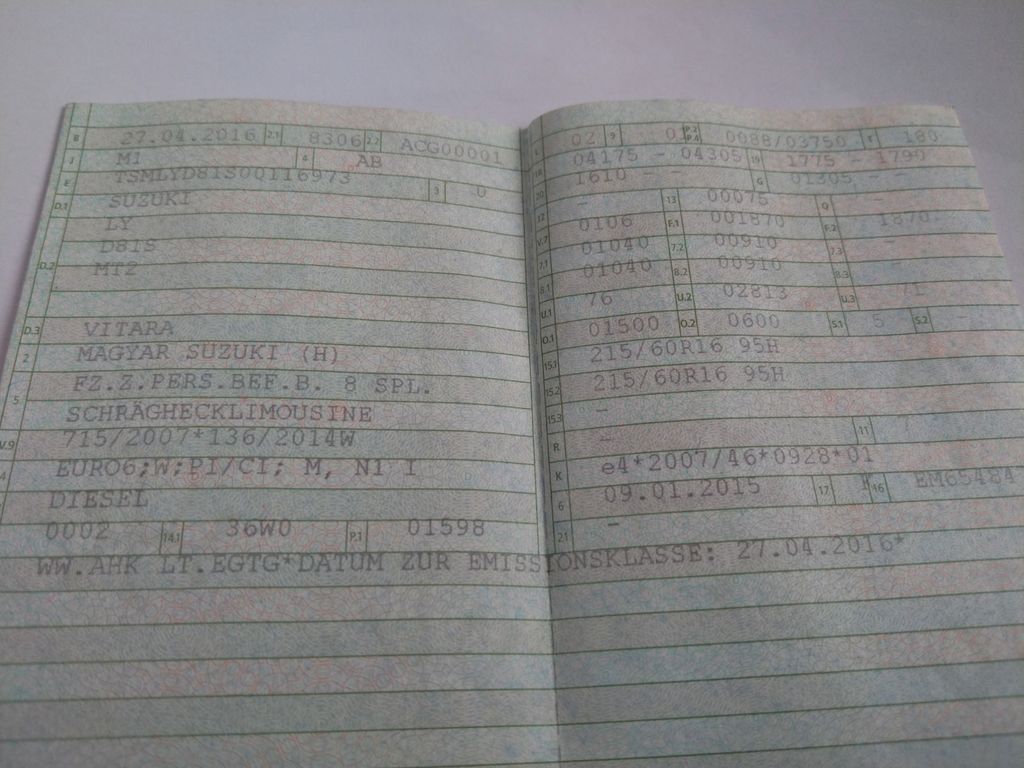 B 27.04.2016 2.1 8306 2.2 ACG00001
J M1 4 AB
E TSMLYD81S00116973 3 0
D.1 SUZUKI
LY
D81S
D.2 MT2
D.3 VITARA
2 MAGYAR SUZUKI (H)
5 FZ.Z.PERS.BEF.B. 8 SPL.
SCHRÄGHECKLIMOUSINE
V.9 715/2007*136/2014W
EURO6;W;PI/CI; M, N1 I
DIESEL
0002 14.1 36W0 P.1 01598
L 02 9 0 P.2 P.4 0088/03750 T 180
18 04175 - 04305 19 1775 - 1790
20 1610 - - G 01305 - -
12 - 13 00075 Q -
V.7 0106 F.1 001870 F.2 1870
7.1 01040 7.2 00910 7.3 -
8.1 01040 8.2 00910 8.3 -
U.1 76 U.2 02813 U.3 71
O.1 01500 O.2 0600 S.1 5 S.2 -
15.1 215/60R16 95H
15.2 215/60R16 95H
15.3 -
R - 11
K e4*2007/46*0928*01
6 09.01.2015 17 16 EM65484
21 -
WW.AHK LT.EGTG*DATUM ZUR EMISSIONSKLASSE: 27.04.2016*